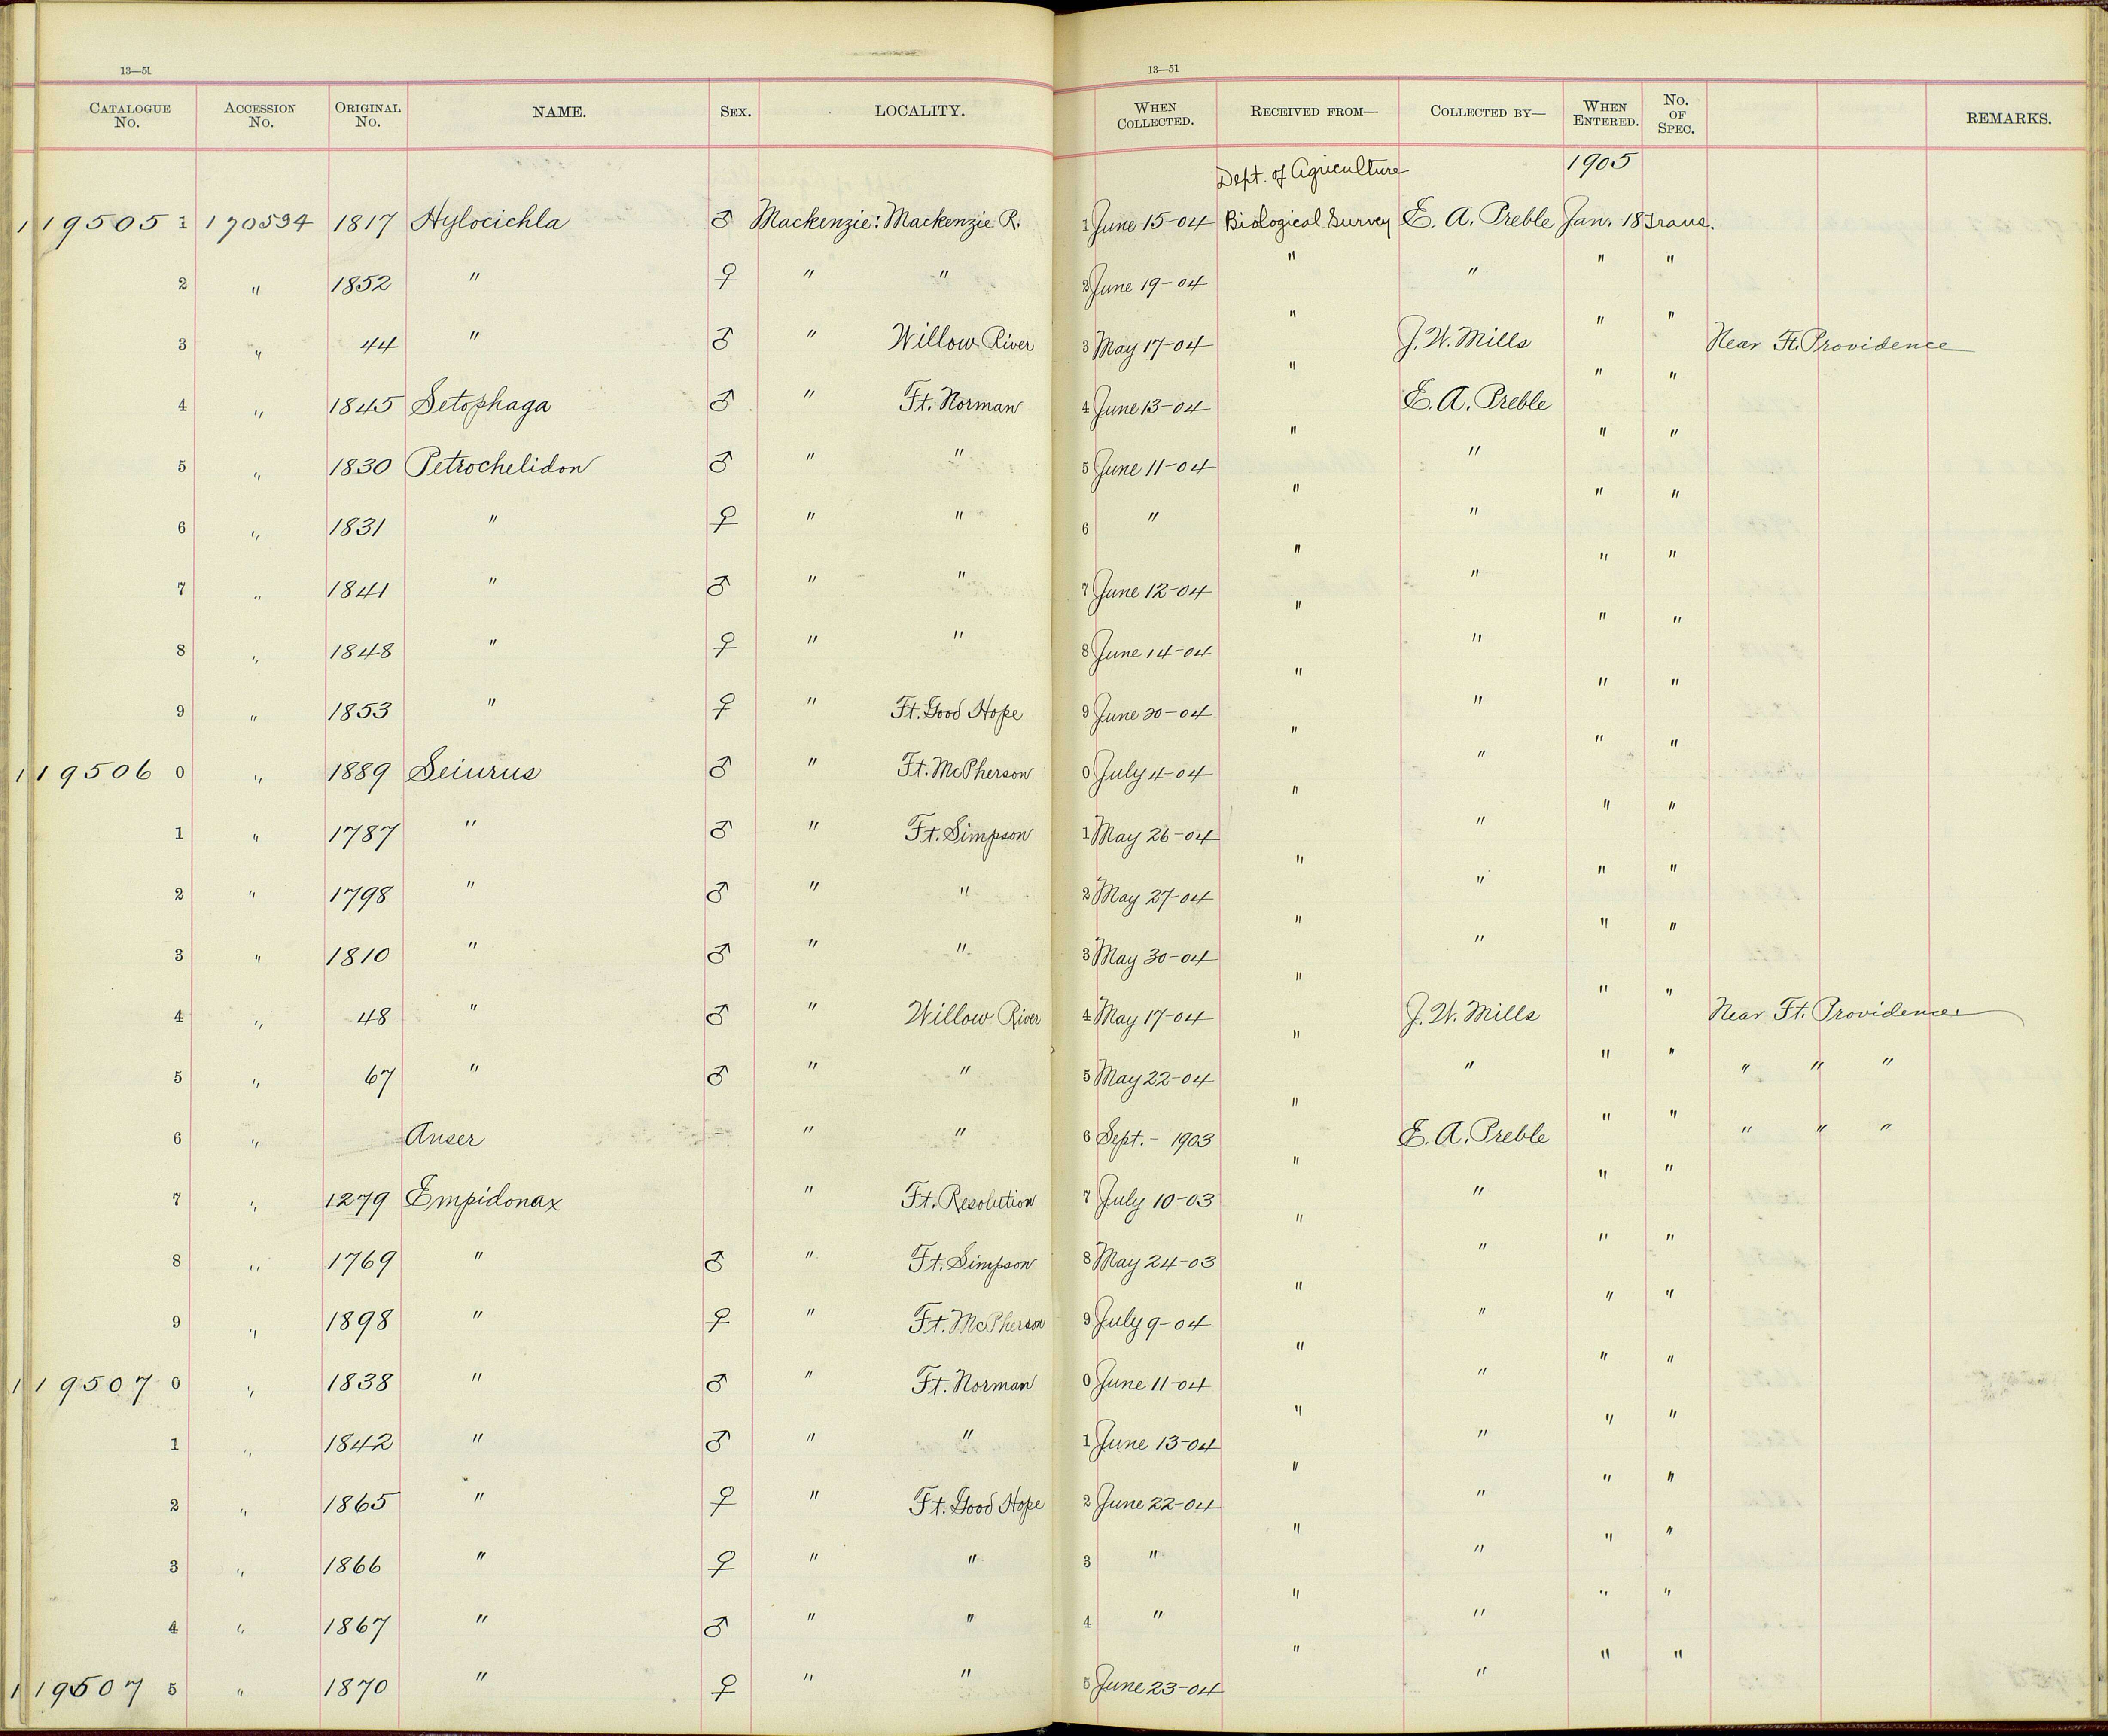 13—51 13—51
CATALOGUE No. ACCESSION No. ORIGINAL No. NAME. SEX. LOCALITY. WHEN COLLECTED. RECEIVED FROM— COLLECTED BY— WHEN ENTERED. No. OF SPEC. REMARKS.
Dept. of Agriculture 1905
119505 1 170534 1817 Hylocichla ♂ Mackenzie: Mackenzie R. 1 June 15-04 Biological Survey E. A. Preble Jan. 18 Trans.
2 " 1852 " ♀ " " 2 June 19-04 " " " "
3 " 44 " ♂ " Willow River 3 May 17-04 " J. W. Mills " " Near Ft. Providence
4 " 1845 Setophaga ♂ " Ft. Norman 4 June 13-04 " E. A. Preble " "
5 " 1830 Petrochelidon ♂ " " 5 June 11-04 " " " "
6 " 1831 " ♀ " " 6 " " " " "
7 " 1841 " ♂ " " 7 June 12-04 " " " "
8 " 1848 " ♀ " " 8 June 14-04 " " " "
9 " 1853 " ♀ " Ft. Good Hope 9 June 20-04 " " " "
119506 0 " 1889 Seiurus ♂ " Ft. McPherson 0 July 4-04 " " " "
1 " 1787 " ♂ " Ft. Simpson 1 May 26-04 " " " "
2 " 1798 " ♂ " " 2 May 27-04 " " " "
3 " 1810 " ♂ " " 3 May 30-04 " " " "
4 " 48 " ♂ " Willow River 4 May 17-04 " J. W. Mills " " Near Ft. Providence
5 " 67 " ♂ " " 5 May 22-04 " " " " " " "
6 " Anser " " 6 Sept. - 1903 " E. A. Preble " " " " "
7 " 1279 Empidonax " Ft. Resolution 7 July 10-03 " " " "
8 " 1769 " ♂ " Ft. Simpson 8 May 24-03 " " " "
9 " 1898 " ♀ " Ft. McPherson 9 July 9-04 " " " "
119507 0 " 1838 " ♂ " Ft. Norman 0 June 11-04 " " " "
1 " 1842 " ♂ " " 1 June 13-04 " " " "
2 " 1865 " ♀ " Ft. Good Hope 2 June 22-04 " " " "
3 " 1866 " ♀ " " 3 " " " " "
4 " 1867 " ♂ " " 4 " " " " "
119507 5 " 1870 " ♀ " " 5 June 23-04 " " " "